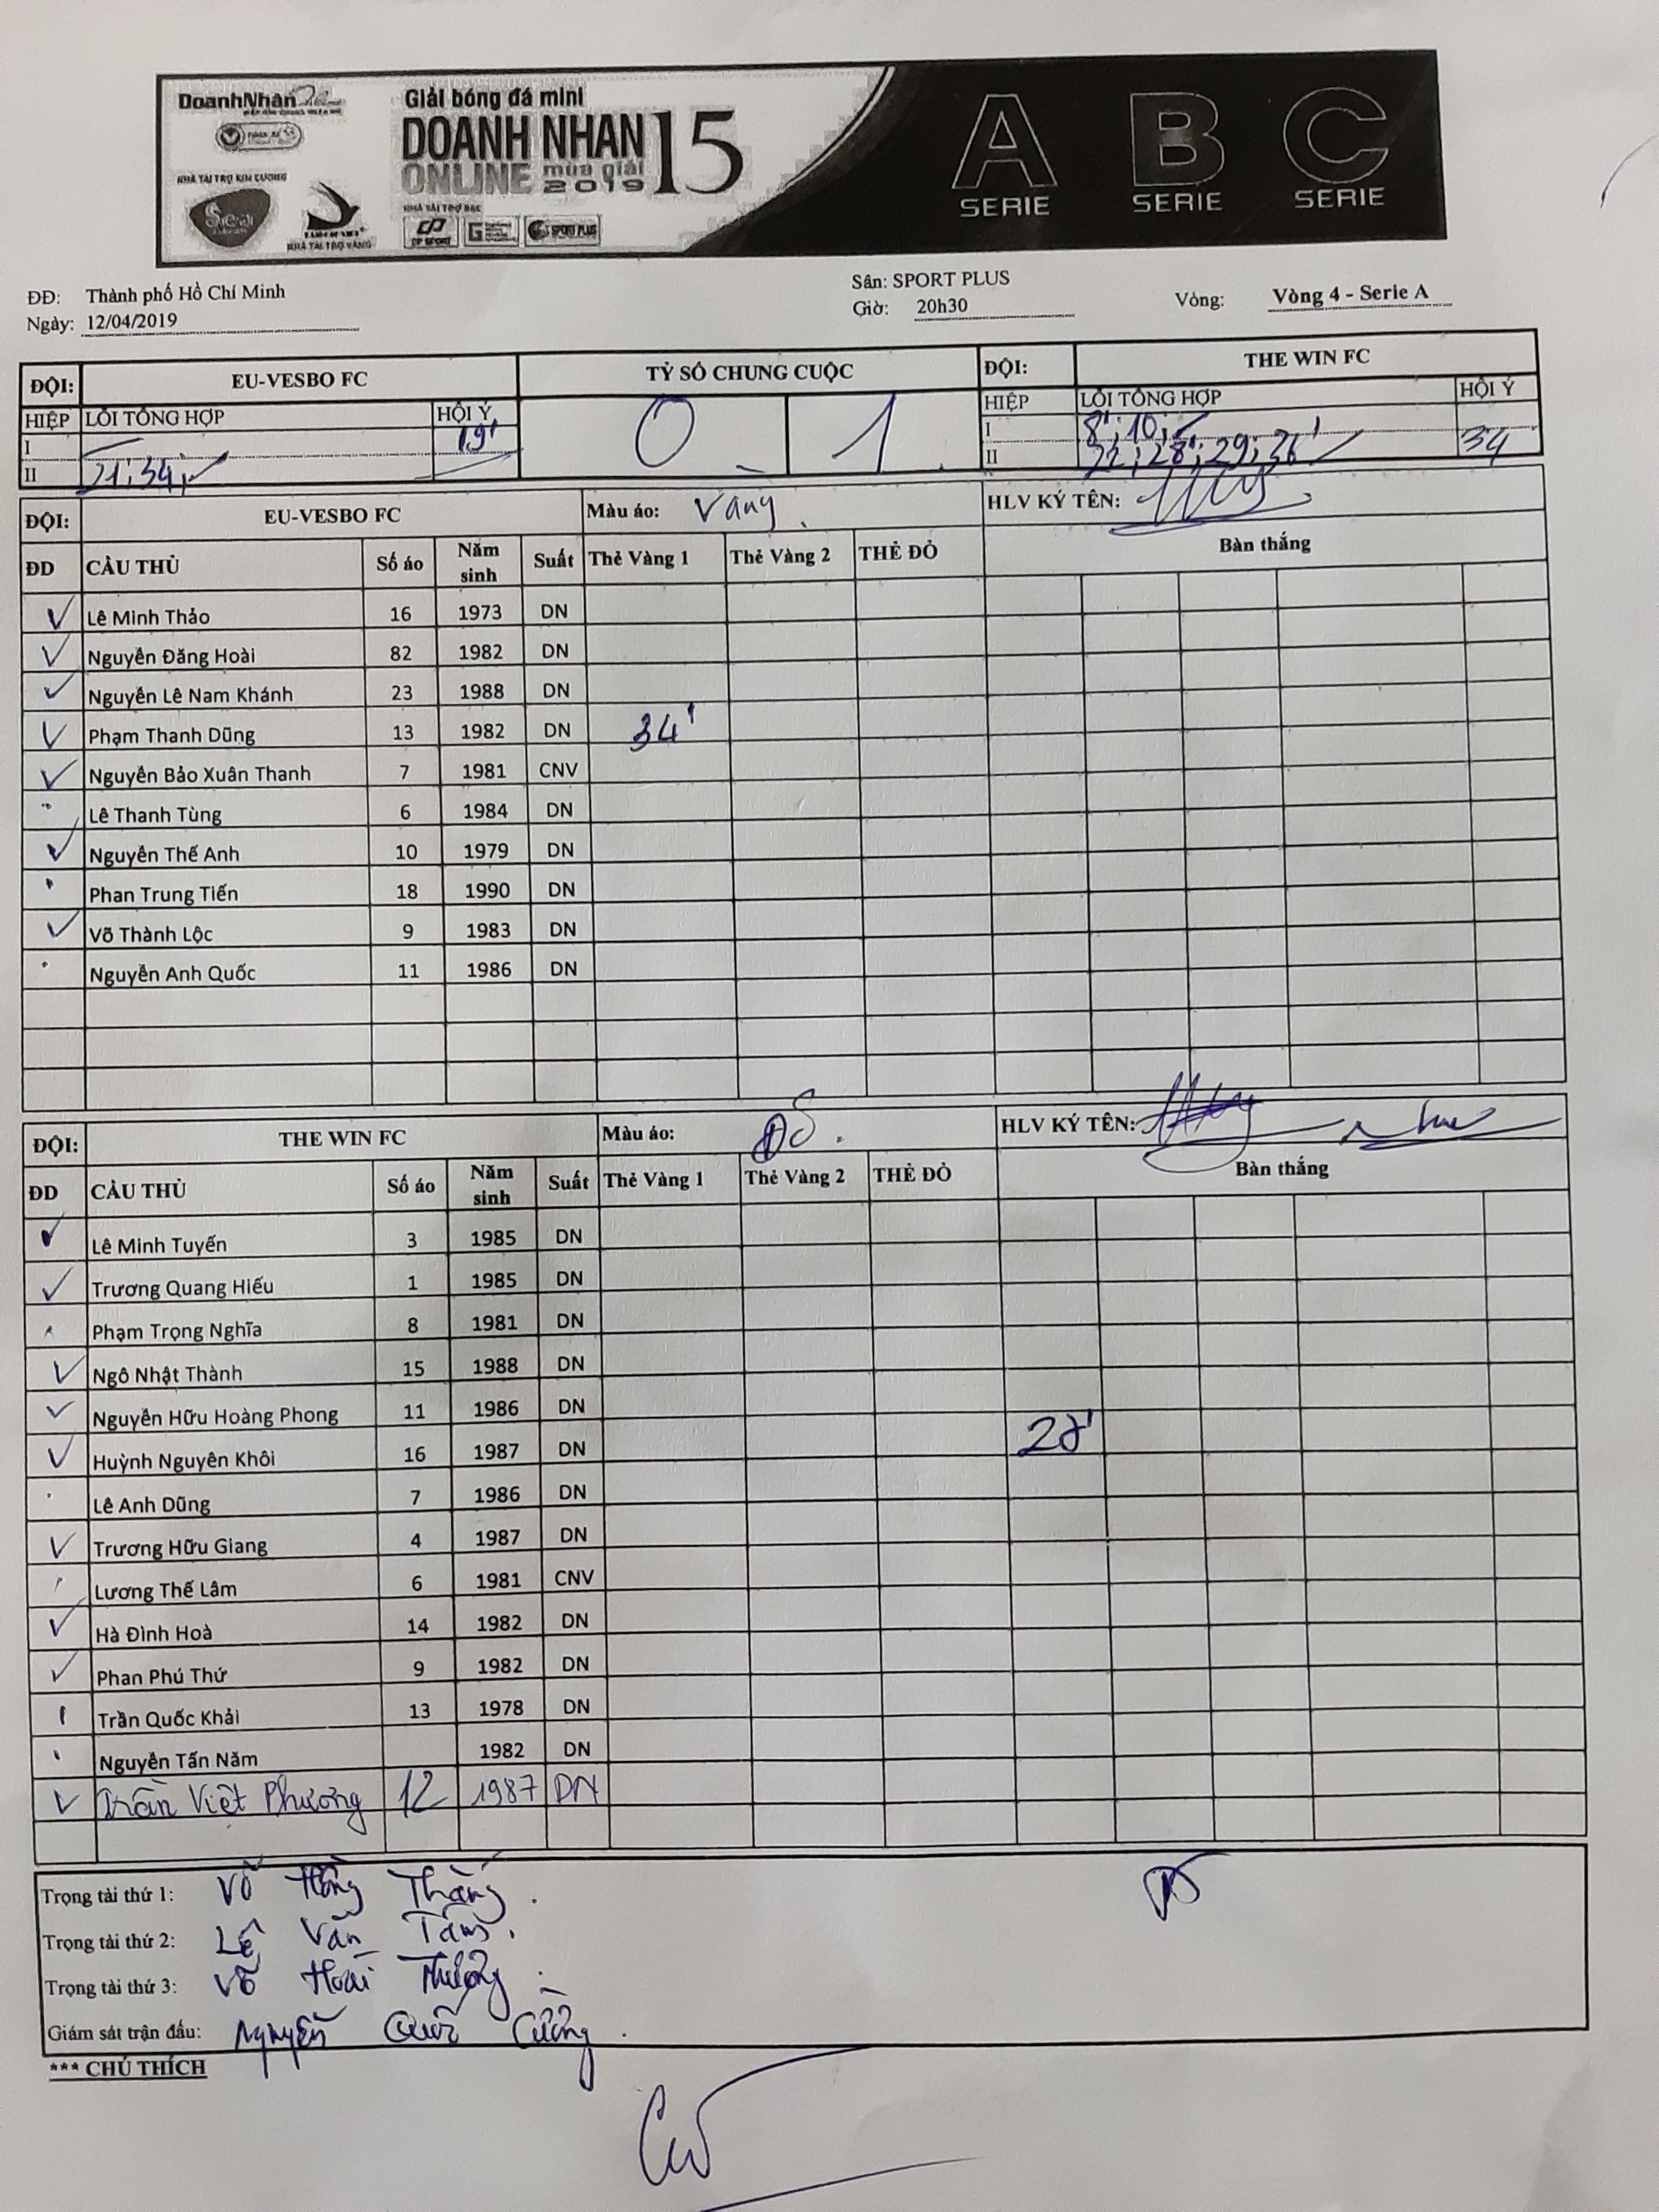 DoanhNhân
Giải bóng đá mini
DOANH NHAN 15
ONLINE mùa giải 2019
NHÀ TÀI TRỢ KIM CƯƠNG
Sea
NHÀ TÀI TRỢ VÀNG
NHÀ TÀI TRỢ BẠC
SPORT PLUS
A SERIE B SERIE C SERIE
ĐĐ: Thành phố Hồ Chí Minh
Ngày: 12/04/2019
Sân: SPORT PLUS
Giờ: 20h30
Vòng: Vòng 4 - Serie A
ĐỘI: EU-VESBO FC TỶ SỐ CHUNG CUỘC ĐỘI: THE WIN FC
HIỆP LỖI TỔNG HỢP HỘI Ý 0 1 HIỆP LỖI TỔNG HỢP HỘI Ý
I 19' I 8'; 10;
II 21; 34; II 22; 28'; 29; 36' 34
ĐỘI: EU-VESBO FC Màu áo: Vàng HLV KÝ TÊN:
ĐD CẦU THỦ Số áo Năm sinh Suất Thẻ Vàng 1 Thẻ Vàng 2 THẺ ĐỎ Bàn thắng
Lê Minh Thảo 16 1973 DN
Nguyễn Đăng Hoài 82 1982 DN
Nguyễn Lê Nam Khánh 23 1988 DN
Phạm Thanh Dũng 13 1982 DN 34'
Nguyễn Bảo Xuân Thanh 7 1981 CNV
Lê Thanh Tùng 6 1984 DN
Nguyễn Thế Anh 10 1979 DN
Phan Trung Tiến 18 1990 DN
Võ Thành Lộc 9 1983 DN
Nguyễn Anh Quốc 11 1986 DN
ĐỘI: THE WIN FC Màu áo: Đỏ. HLV KÝ TÊN:
ĐD CẦU THỦ Số áo Năm sinh Suất Thẻ Vàng 1 Thẻ Vàng 2 THẺ ĐỎ Bàn thắng
Lê Minh Tuyến 3 1985 DN
Trương Quang Hiếu 1 1985 DN
Phạm Trọng Nghĩa 8 1981 DN
Ngô Nhật Thành 15 1988 DN
Nguyễn Hữu Hoàng Phong 11 1986 DN
Huỳnh Nguyên Khôi 16 1987 DN 28'
Lê Anh Dũng 7 1986 DN
Trương Hữu Giang 4 1987 DN
Lương Thế Lâm 6 1981 CNV
Hà Đình Hoà 14 1982 DN
Phan Phú Thứ 9 1982 DN
Trần Quốc Khải 13 1978 DN
Nguyễn Tấn Năm 1982 DN
Trần Việt Phương 12 1987 DN
Trọng tài thứ 1: Võ Hồng Thắng.
Trọng tài thứ 2: Lê Văn Tâm.
Trọng tài thứ 3: Võ Hoài Thương
Giám sát trận đấu: Nguyễn Quốc Cường.
*** CHÚ THÍCH